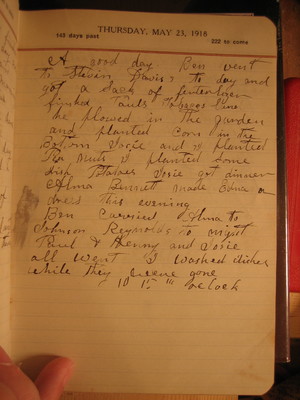 THURSDAY, MAY 23, 1918
143 days past
222 to come
A good day Ben went
to Steven Davis's to day and
got a Sack of
finished Pauls Tobacco
he plowed in the Garden
and planted Corn in the
Bottom Josie and I planted
Pea nuts I planted Some
Irish Potatoes Josie got dinner
Alma Bennett made Edna a
dress this evening
Ben Carried Alma to
Johnson Reynolds to night
Paul & Henry and Josie
all went I washed dishes
while they were gone
10 15 "' o'clock